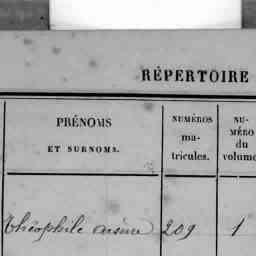 RÉPERTOIRE
PRÉNOMS
ET SURNOMS.
NUMÉROS
ma-
tricules.
NU-
MÉRO
du
volume
Théophile arsène 209 1